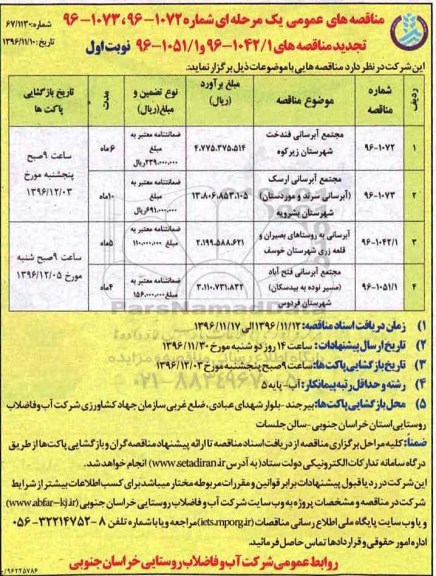 مناقصه های عمومی یک مرحله ای شماره ۱۰۷۲-۹۶، ۱۰۷۳-۹۶
تجدید مناقصه های ۱۰۴۲/۱-۹۶ و ۱۰۵۱/۱-۹۶ نوبت اول
شماره: ۶۷/۱۱۳۰
تاریخ: ۱۳۹۶/۱۱/۱۰
این شرکت در نظر دارد مناقصه هایی با موضوعات ذیل برگزار نماید:
ردیف | شماره مناقصه | موضوع مناقصه | مبلغ برآورد (ریال) | نوع تضمین و مبلغ (ریال) | مدت | تاریخ بازگشایی پاکت ها
۱ | ۹۶-۱۰۷۲ | مجتمع آبرسانی فندخت شهرستان زیرکوه | ۴.۷۷۵.۳۷۵.۵۱۴ | ضمانتنامه معتبر به مبلغ ۲۳۹.۰۰۰.۰۰۰ریال | ۶ماه | ساعت ۹صبح پنجشنبه مورخ ۱۳۹۶/۱۲/۰۳
۲ | ۹۶-۱۰۷۳ | مجتمع آبرسانی ارسک (آبرسانی سرند و موردستان) شهرستان بشرویه | ۱۳.۸۰۶.۸۵۳.۱۰۵ | ضمانتنامه معتبر به مبلغ ۶۹۱.۰۰۰.۰۰۰ریال | ۱۰ماه
۳ | ۹۶-۱۰۴۲/۱ | آبرسانی به روستاهای بصیران و قلعه زری شهرستان خوسف | ۲.۱۹۹.۵۸۸.۶۲۱ | ضمانتنامه معتبر به مبلغ ۱۱۰.۰۰۰.۰۰۰ | ۵ماه | ساعت ۹صبح شنبه مورخ ۱۳۹۶/۱۲/۰۵
۴ | ۹۶-۱۰۵۱/۱ | مجتمع آبرسانی فتح آباد (مسیر نوده به بیدسکان) شهرستان فردوس | ۳.۱۱۰.۷۳۱.۸۳۲ | ضمانتنامه معتبر به مبلغ ۱۵۶.۰۰۰.۰۰۰ | ۴ماه
۱) زمان دریافت اسناد مناقصه: ۱۳۹۶/۱۱/۱۲ الی ۱۳۹۶/۱۱/۱۷
۲) تاریخ ارسال پیشنهادات: ساعت ۱۴ روز دو شنبه مورخ ۱۳۹۶/۱۱/۳۰
۳) تاریخ بازگشایی پاکت ها: ساعت ۹صبح پنجشنبه مورخ ۱۳۹۶/۱۲/۰۳
۴) رشته و حداقل رتبه پیمانکار: آب- پایه ۵
۵) محل بازگشایی پاکت ها: بیرجند - بلوار شهدای عبادی، ضلع غربی سازمان جهاد کشاورزی شرکت آب و فاضلاب روستایی استان خراسان جنوبی- سالن جلسات
ضمناً: کلیه مراحل برگزاری مناقصه از دریافت اسناد مناقصه تا ارائه پیشنهاد مناقصه گران و بازگشایی پاکت ها از طریق درگاه سامانه تدارکات الکترونیکی دولت ستاد (به آدرس www.setadiran.ir) انجام خواهد شد.
این شرکت در رد یا قبول پیشنهادات برابر قوانین و مقررات مربوطه مختار میباشد برای کسب اطلاعات بیشتر از شرایط شرکت در مناقصه و مشخصات پروژه به وب سایت شرکت آب و فاضلاب روستایی خراسان جنوبی (www.abfar-kj.ir) و یا وب سایت پایگاه ملی اطلاع رسانی مناقصات (iets.mporg.ir) مراجعه و یا با شماره تلفن ۸-۳۲۲۱۴۷۵۲-۰۵۶ اداره امور حقوقی و قراردادها تماس حاصل فرمائید.
روابط عمومی شرکت آب و فاضلاب روستایی خراسان جنوبی
۹۶۲۲۵۷۸۶